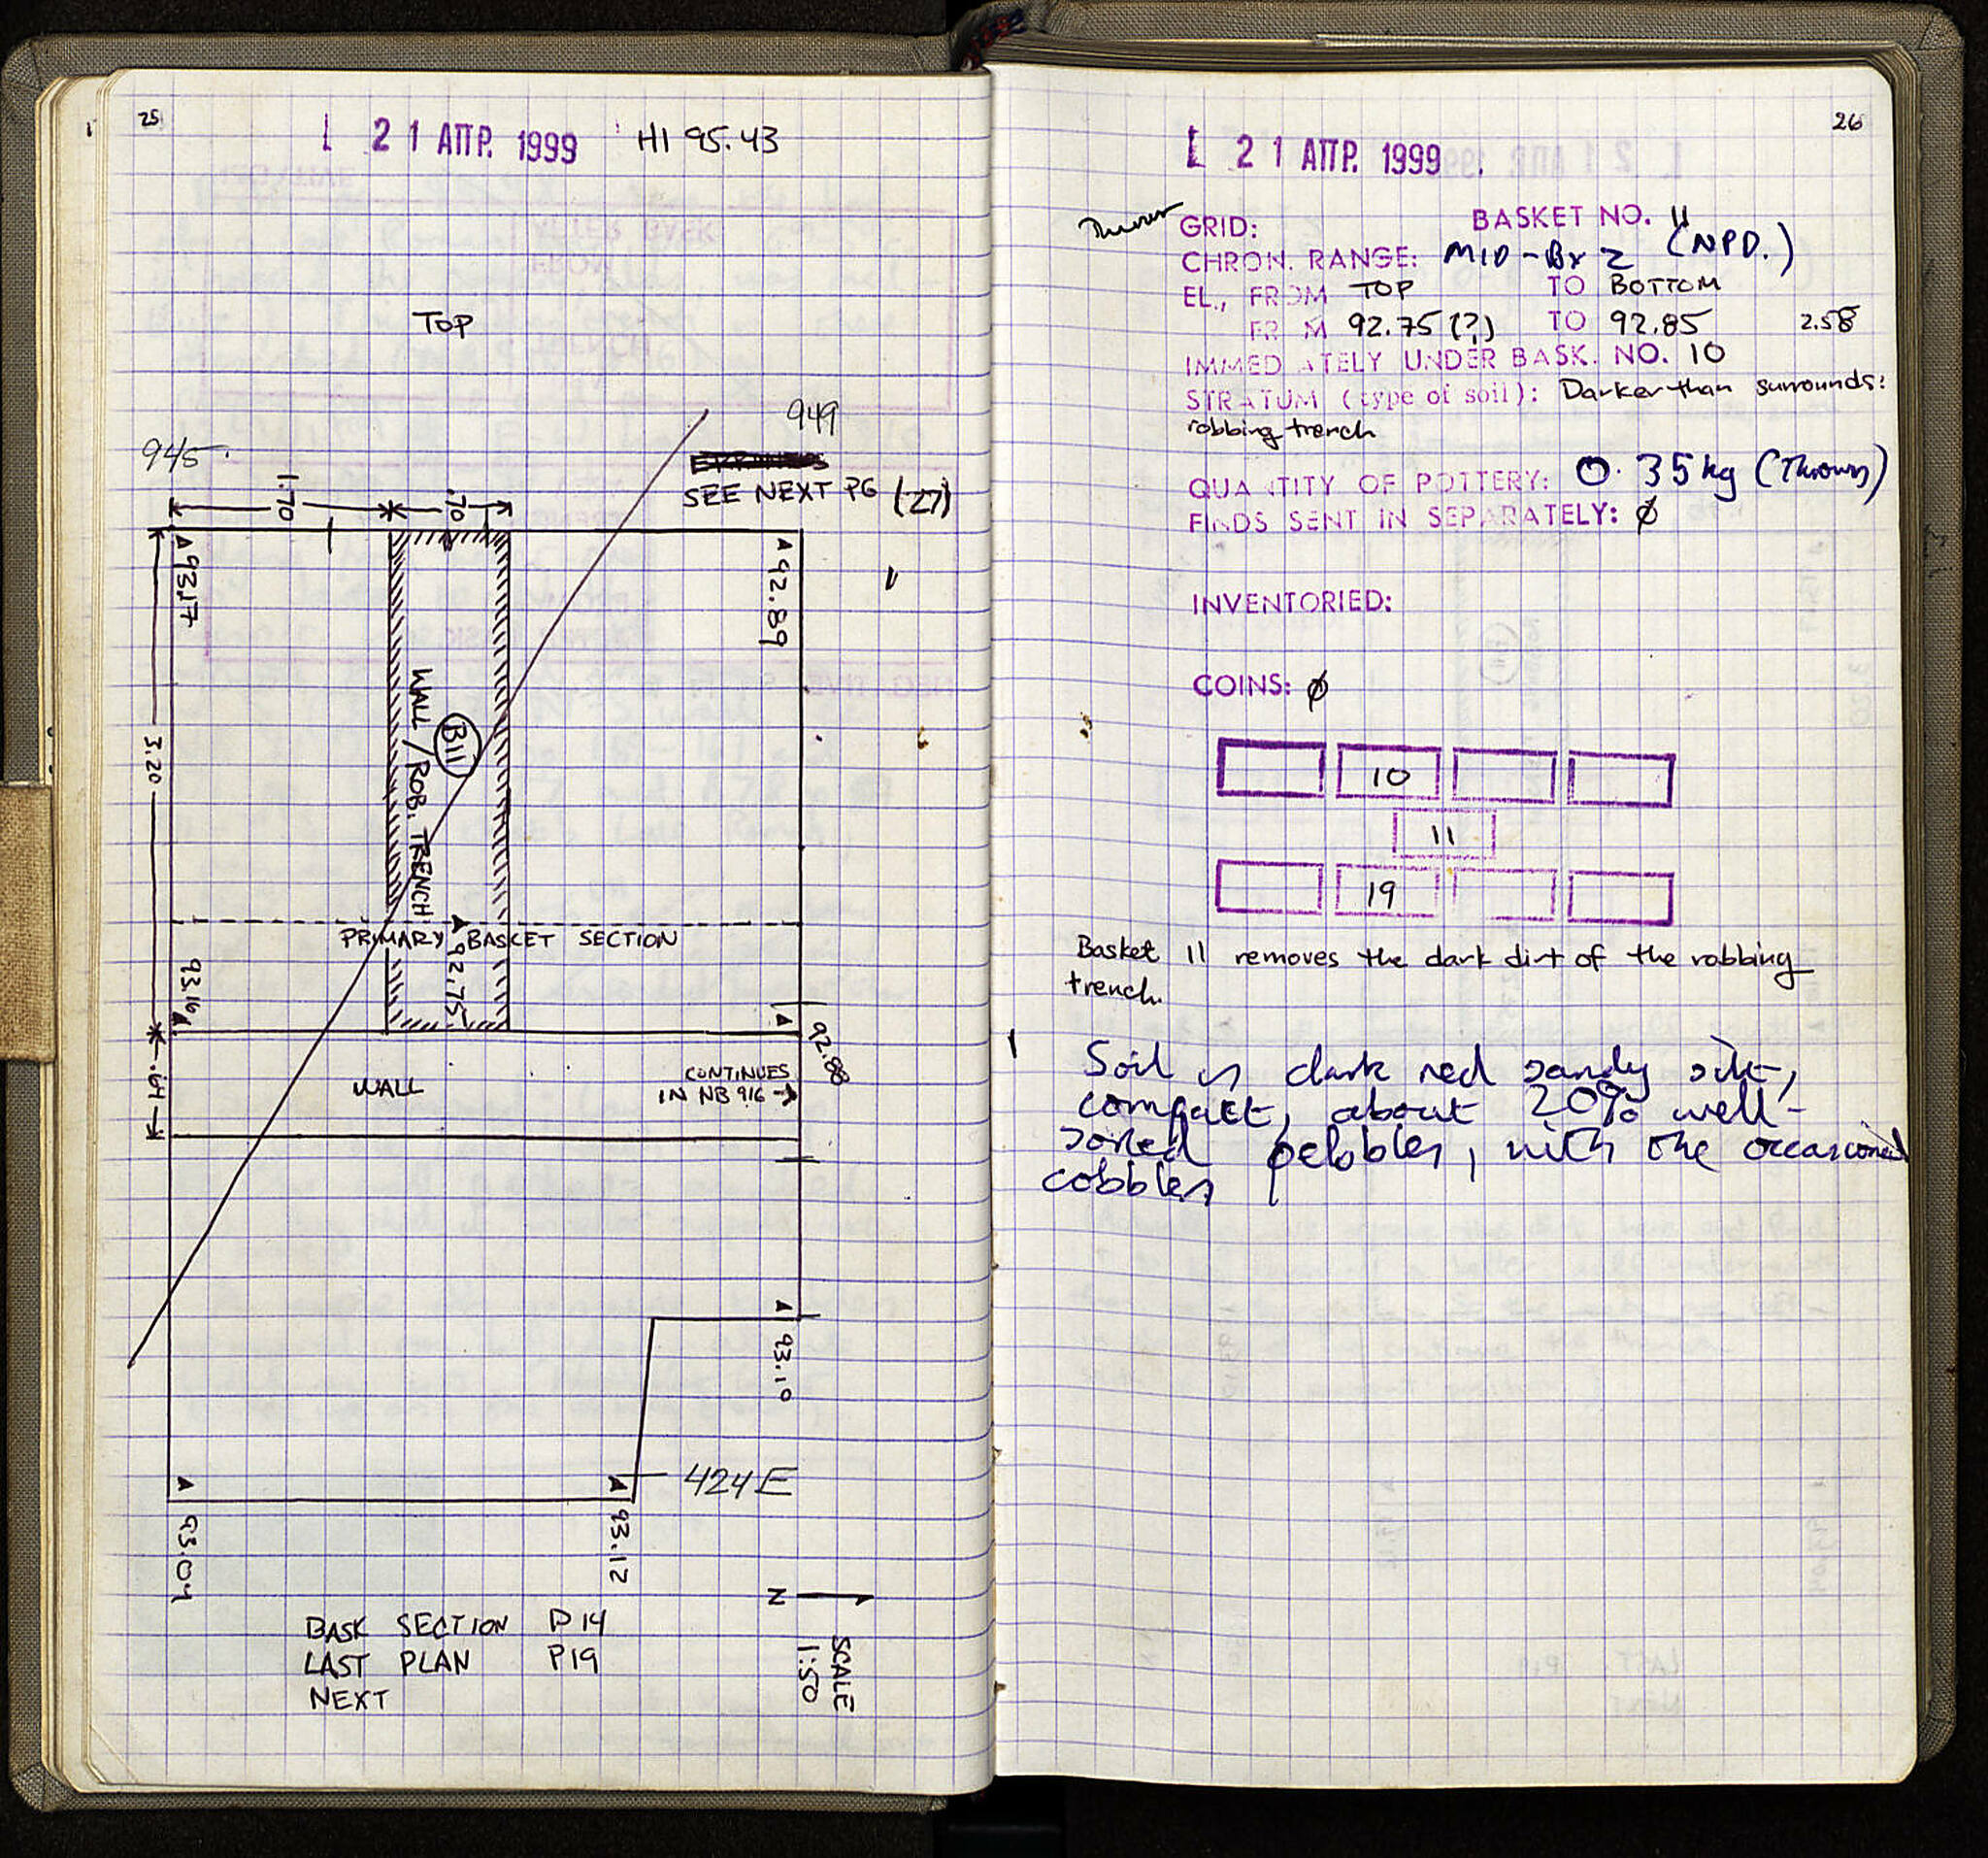 25
21 ΑΠΡ. 1999 HI 95.43
TOP
945 949
SEE NEXT PG (27)
1.70 .70
93.17 92.89
WALL / ROB. TRENCH
B11
3.20
PRIMARY BASKET SECTION
93.16 92.75 92.88
.64 WALL CONTINUES
IN NB 916 →
93.10
424E
93.04 93.12
N
SCALE
1:50
BASK SECTION P14
LAST PLAN P19
NEXT
26
21 ΑΠΡ. 1999
Thrown GRID: BASKET NO. 11
CHRON. RANGE: MID-BYZ (NPD.)
EL., FROM TOP TO BOTTOM
FR M 92.75(?) TO 92.85 2.58
IMMED ATELY UNDER BASK. NO. 10
STRATUM (type of soil): Darker than surrounds:
robbing trench
QUANTITY OF POTTERY: 0.35kg (Thrown)
FINDS SENT IN SEPARATELY: Ø
INVENTORIED:
COINS: Ø
10
11
19
Basket 11 removes the dark dirt of the robbing
trench.
Soil is dark red sandy silt,
compact, about 20% well-
sorted pebbles, with the occasional
cobbles